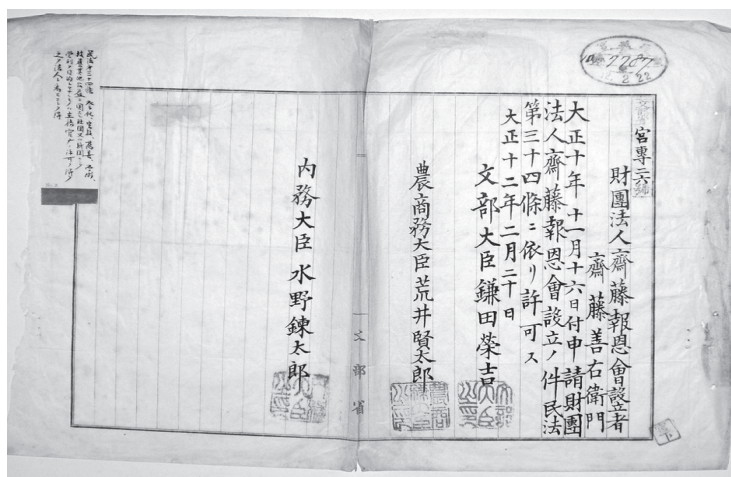 宮專二六號
財團法人齋藤報恩會設立者
齋藤善右衛門
大正十年十一月十六日付申請財團
法人齋藤報恩會設立ノ件民法
第三十四條ニ依リ許可ス
大正十二年二月二十日
文部大臣鎌田榮吉
農商務大臣荒井賢太郎
内務大臣水野錬太郎
文部省
民法第三十四條